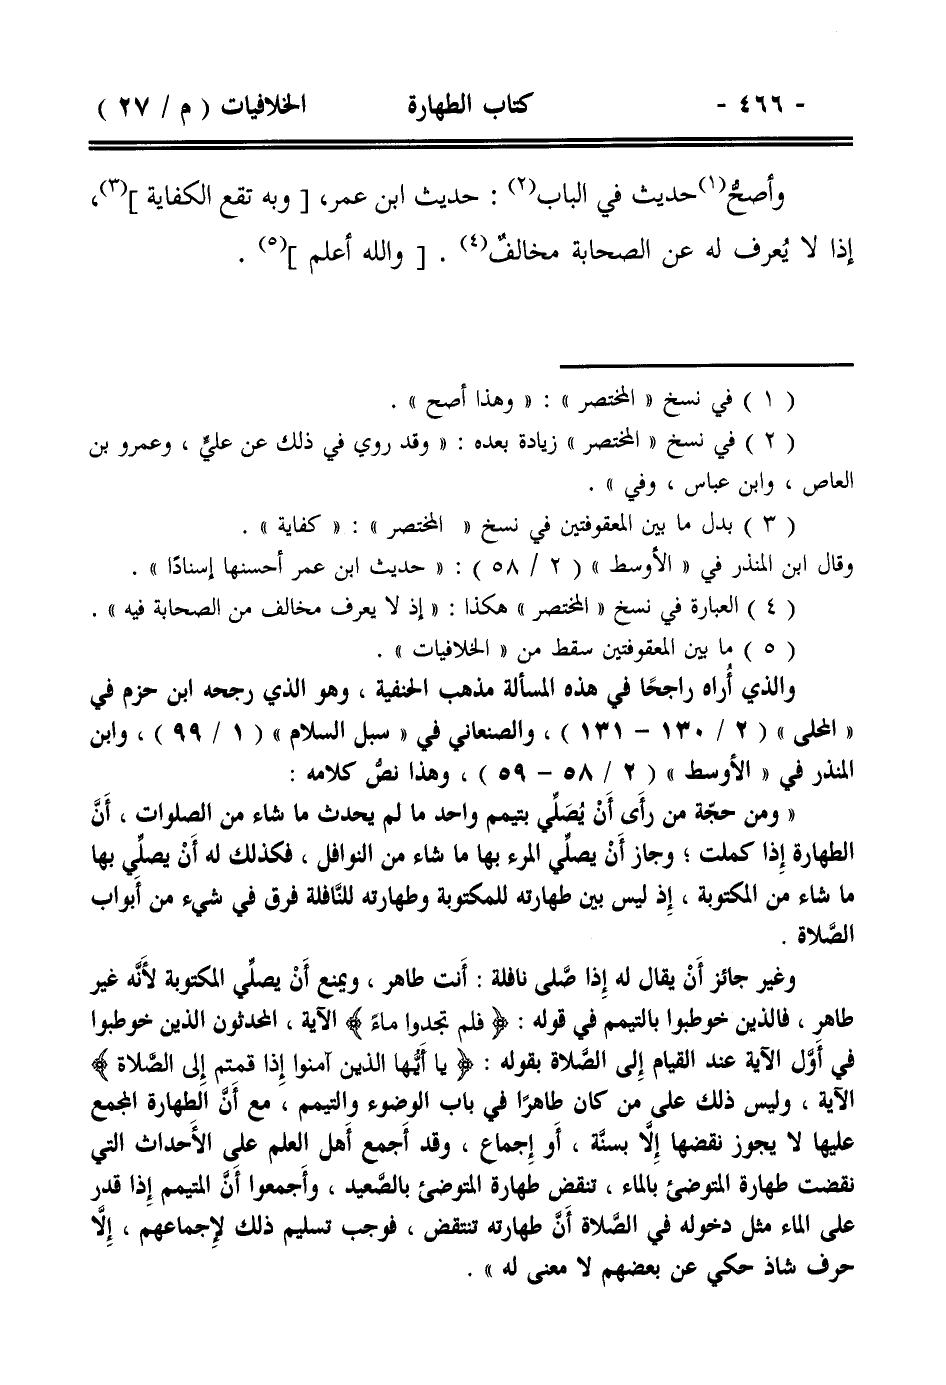 - ٤٦٦ - كتاب الطهارة الخلافيات ( م / ٢٧ )
وأصحُّ(١) حديث في الباب(٢) : حديث ابن عمر، [ وبه تقع الكفاية ](٣)،
إذا لا يُعرف له عن الصحابة مخالفٌ(٤) . [ والله أعلم ](٥) .
( ١ ) في نسخ « المختصر » : « وهذا أصح » .
( ٢ ) في نسخ « المختصر » زيادة بعده : « وقد روي في ذلك عن عليٍّ ، وعمرو بن
العاص ، وابن عباس ، وفي » .
( ٣ ) بدل ما بين المعقوفتين في نسخ « المختصر » : « كفاية » .
وقال ابن المنذر في « الأوسط » ( ٢ / ٥٨ ) : « حديث ابن عمر أحسنها إسنادًا » .
( ٤ ) العبارة في نسخ « المختصر » هكذا : « إذ لا يعرف مخالف من الصحابة فيه » .
( ٥ ) ما بين المعقوفتين سقط من « الخلافيات » .
والذي أُراه راجحًا في هذه المسألة مذهب الحنفية ، وهو الذي رجحه ابن حزم في
« المحلى » ( ٢ / ١٣٠ – ١٣١ ) ، والصنعاني في « سبل السلام » ( ١ / ٩٩ ) ، وابن
المنذر في « الأوسط » ( ٢ / ٥٨ – ٥٩ ) ، وهذا نصُّ كلامه :
« ومن حجّة من رأى أَنْ يُصَلِّي بتيمم واحد ما لم يحدث ما شاء من الصلوات ، أَنَّ
الطهارة إِذا كملت ؛ وجاز أَنْ يصلِّي المرء بها ما شاء من النوافل ، فكذلك له أَنْ يصلِّي بها
ما شاء من المكتوبة ، إِذ ليس بين طهارته للمكتوبة وطهارته للنَّافلة فرق في شيء من أَبواب
الصَّلاة .
وغير جائز أَنْ يقال له إِذا صَّلى نافلة : أَنت طاهر ، ويمنع أَنْ يصلِّي المكتوبة لأَنَّه غير
طاهر ، فالذين خوطبوا بالتيمم في قوله : ﴿ فلم تجدوا ماءً ﴾ الآية ، المحدثون الذين خوطبوا
في أَوَّل الآية عند القيام إِلى الصَّلاة بقوله : ﴿ يا أَيُّها الذين آمنوا إِذا قمتم إِلى الصَّلاة ﴾
الآية ، وليس ذلك على من كان طاهرًا في باب الوضوء والتيمم ، مع أَنَّ الطهارة المجمع
عليها لا يجوز نقضها إِلَّا بسنَّة ، أَو إِجماع ، وقد أَجمع أَهل العلم على الأَحداث التي
نقضت طهارة المتوضئ بالماء ، تنقض طهارة المتوضئ بالصَّعيد ، وأَجمعوا أَنَّ المتيمم إِذا قدر
على الماء مثل دخوله في الصَّلاة أَنَّ طهارته تنتقض ، فوجب تسليم ذلك لإِجماعهم ، إِلَّا
حرف شاذ حكي عن بعضهم لا معنى له » .